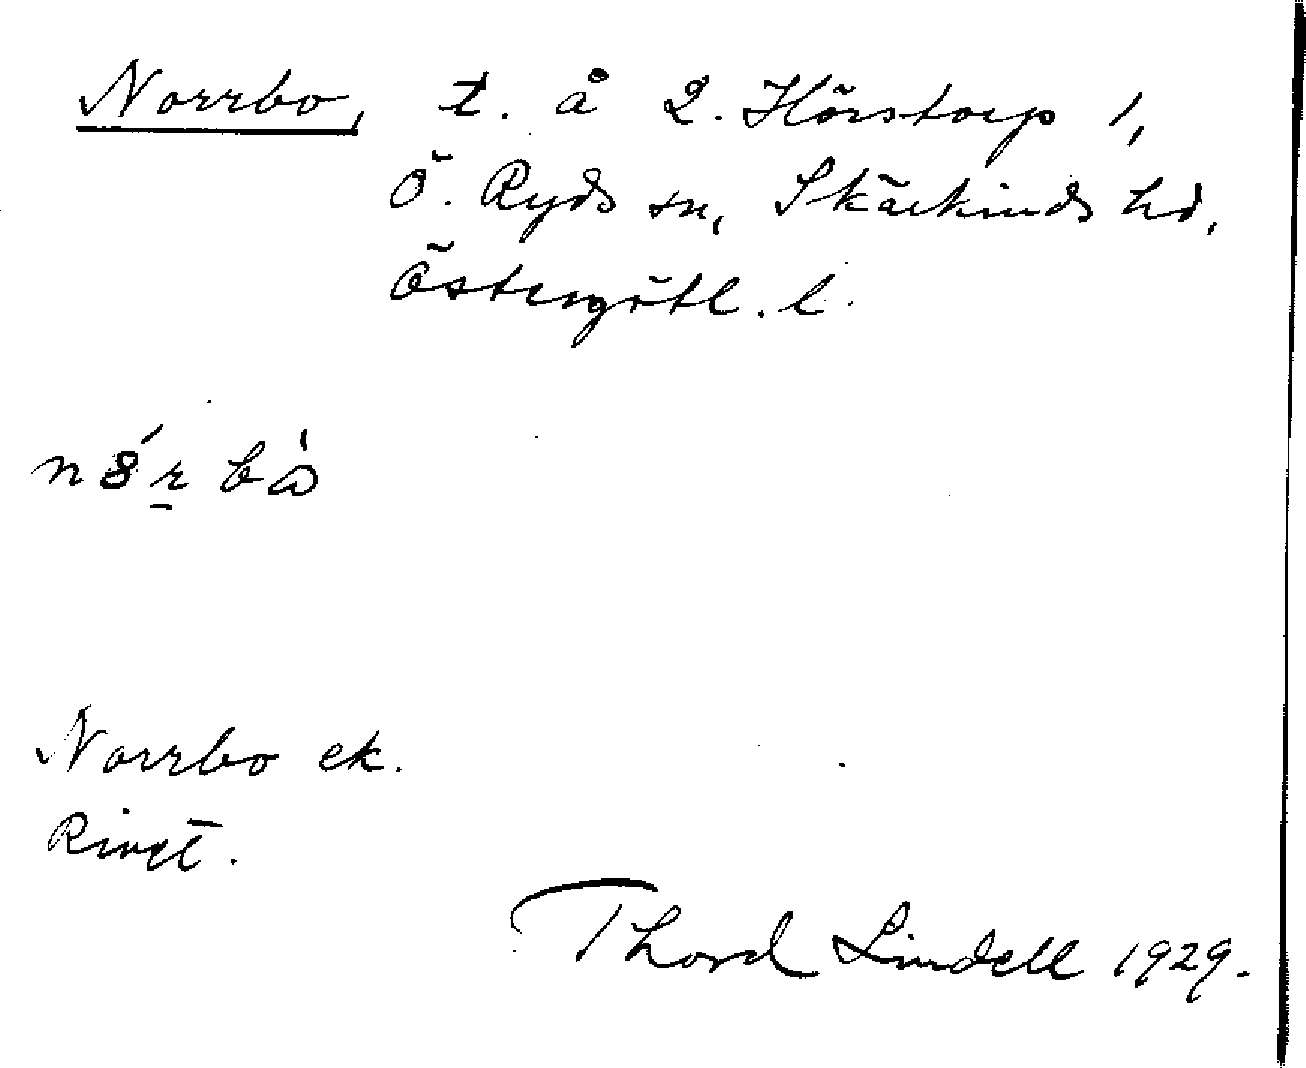 Norrbo, t. å 2. Hörstorp 1,
Ö. Ryds sn, Skärkinds hd,
Östergötl. l.
Norrbo ek.
Rivet.
Thord Lindell 1929.